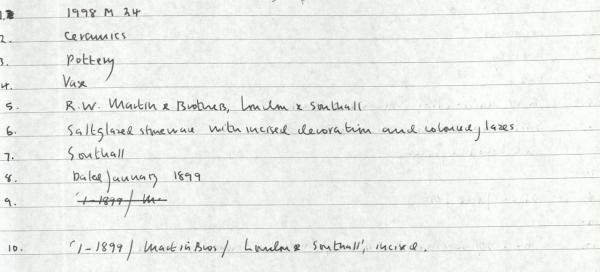 1. 1998 M 34
2. Ceramics
3. Pottery
4. Vase
5. R.W. Martin & Brothers, London & Southall
6. Saltglazed stoneware with incised decoration and coloured glazes
7. Southall
8. Dated January 1899
9. '1-1899/ M
10. '1-1899/ Martin Bros/ London & Southall', incised.